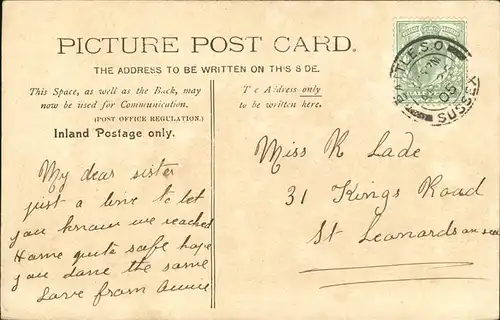 PICTURE POST CARD.
THE ADDRESS TO BE WRITTEN ON THIS SIDE.
This Space, as well as the Back, may
now be used for Communication.
(POST OFFICE REGULATION.)
Inland Postage only.
My dear sister
just a line to let
you know we reached
Home quite safe hope
you done the same
Love from Annie
The Address only
to be written here.
Miss R Lade
31 Kings Road
St Leonards on sea
BATTLE S.O.
05
SUSSEX